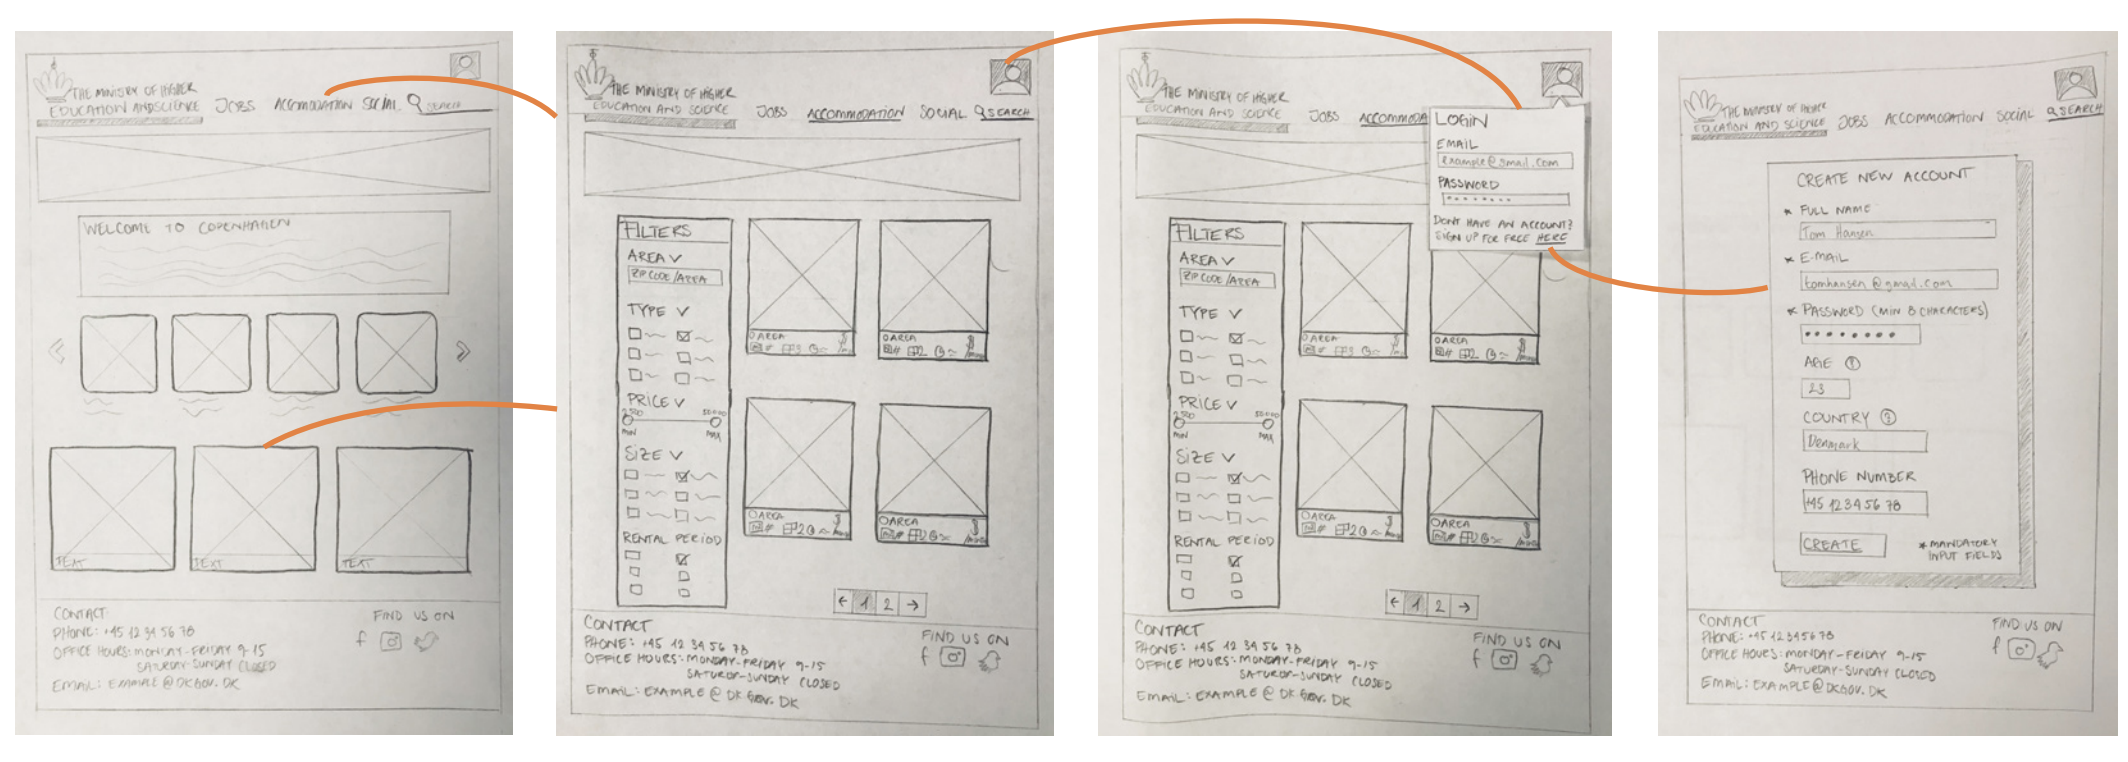 THE MINISRY OF HIGHER
EDUCATION AND SCIENCE
JOBS
ACCOMODATION
SOCIAL
SEARCH
WELCOME TO COPENHAGEN
TEXT
TEXT
TEXT
CONTACT:
PHONE: +45 12 34 56 78
OFFICE HOURS: MONDAY-FRIDAY 9-15
SATURDAY-SUNDAY CLOSED
EMAIL: EXAMPLE@DKGOV.DK
FIND US ON
f
THE MINISTRY OF HIGHER
EDUCATION AND SCIENCE
JOBS
ACCOMMODATION
SOCIAL
SEARCH
FILTERS
AREA
ZIP CODE/AREA
TYPE
PRICE
2.500
50.000
MIN
MAX
SIZE
RENTAL PERIOD
AREA
# 3
AREA
# 2
AREA
# 2
AREA
# 2
← 1 2 →
CONTACT
PHONE: +45 12 34 56 78
OFFICE HOURS: MONDAY-FRIDAY 9-15
SATURDAY-SUNDAY CLOSED
EMAIL: EXAMPLE@DKGOV.DK
FIND US ON
f
THE MINISTRY OF HIGHER
EDUCATION AND SCIENCE
JOBS
ACCOMMODA
LOGIN
EMAIL
example@gmail.com
PASSWORD
DONT HAVE AN ACCOUNT?
SIGN UP FOR FREE HERE
FILTERS
AREA
ZIP CODE/AREA
TYPE
PRICE
2.500
50.000
MIN
MAX
SIZE
RENTAL PERIOD
AREA
# 3
AREA
# 2
AREA
# 2
AREA
# 2
← 1 2 →
CONTACT
PHONE: +45 12 34 56 78
OFFICE HOURS: MONDAY-FRIDAY 9-15
SATURDAY-SUNDAY CLOSED
EMAIL: EXAMPLE@DKGOV.DK
FIND US ON
f
THE MINISTRY OF HIGHER
EDUCATION AND SCIENCE
JOBS
ACCOMMODATION
SOCIAL
SEARCH
CREATE NEW ACCOUNT
* FULL NAME
Tom Hansen
* E-MAIL
tomhansen@gmail.com
* PASSWORD (MIN 8 CHARACTERS)
AGE
23
COUNTRY
Denmark
PHONE NUMBER
+45 12345678
CREATE
* MANDATORY
INPUT FIELDS
CONTACT
PHONE: +45 12345678
OFFICE HOURS: MONDAY-FRIDAY 9-15
SATURDAY-SUNDAY CLOSED
EMAIL: EXAMPLE@DKGOV.DK
FIND US ON
f